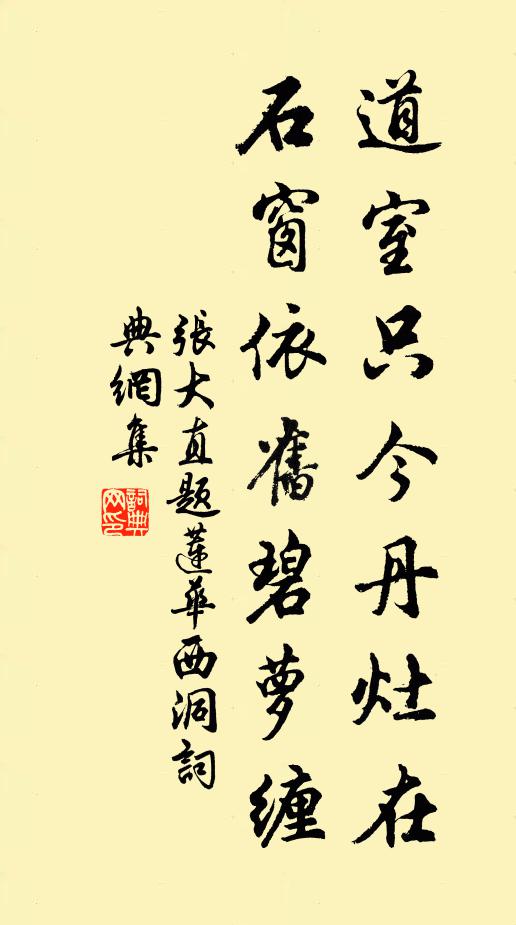 道室只今丹灶在
石窗依舊碧萝缠
張大直題蓮華西洞詞
典網集
詞典網印